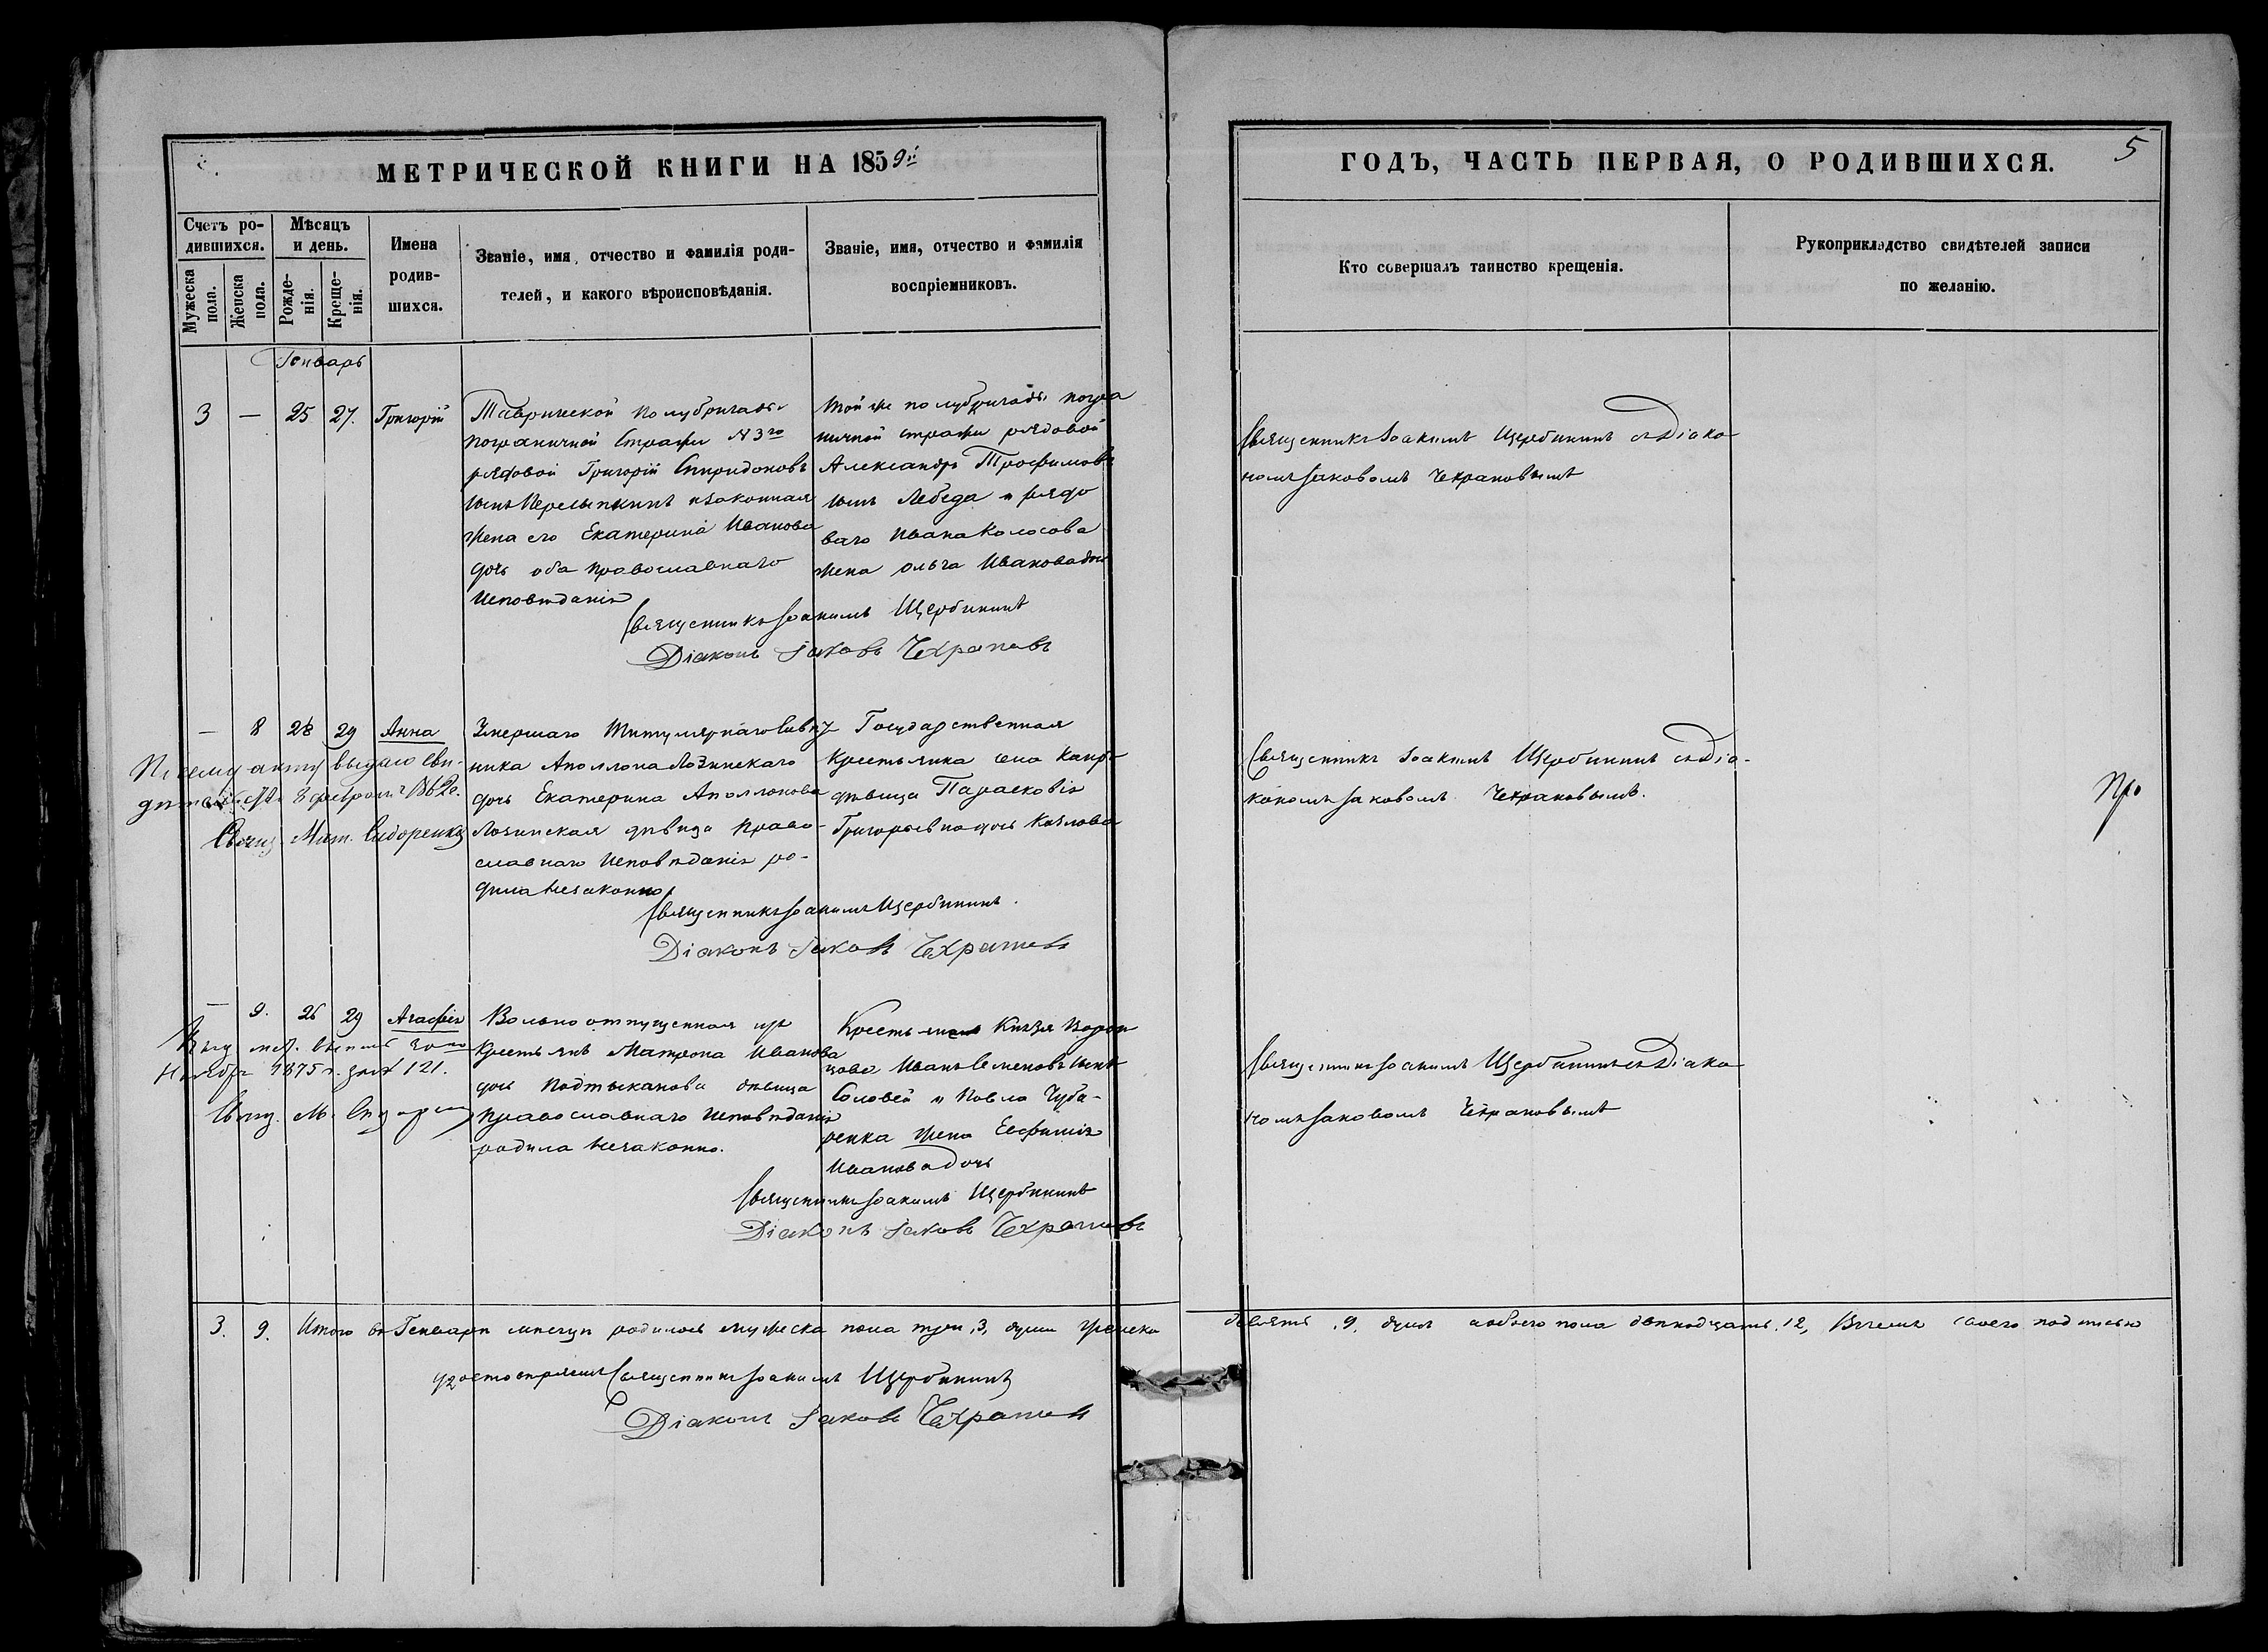 МЕТРИЧЕСКОЙ КНИГИ НА 1859й
Счетъ ро-
дившихся.
Мужеска
пола.
Женска
пола.
Мѣсяцъ
и день.
Рожде-
нія.
Креще-
нія.
Имена
родив-
шихся.
Званіе, имя, отчество и фамилія роди-
телей, и какого вѣроисповѣданія.
Званіе, имя, отчество и фамилія
воспріемниковъ.
Генварь
3 — 25 27. Григорій
Таврической полубригады
пограничной Стражи N 3го
рядовой Григорій Спиридоновъ
сынъ изаконная
жена его Екатерина Иванова
дочь оба православнаго
Исповѣданія
Той же полубригады погра
ничной стражи рядовой
Александръ Трофимовъ
сынъ Лебеда и рядо
ваго Ивана Колосова
жена Ольга Иванова дочь
Священникъ Іоакимъ Щербининъ
Діаконъ Іаковъ Чехрановъ
— 8 28 29 Анна
По сему акту выдано сви-
8 февраля
Свящ. Мат. Сидоренко
Умершаго Титулярнаго Совѣт
ника Аполлона Лозинскаго
дочь Екатерина Аполлонова
Лозинская дѣвица Право-
славнаго Исповѣданія ро-
дила незаконно
Государственная
Крестьянка села
дѣвица Параскевія
Григорьевна дочь Козлова
Священникъ Іоакимъ Щербининъ.
Діаконъ Іаковъ Чехрановъ
— 9. 26 29 Агафія
1875 г. за N 121.
Свящ. М.
Вольноотпущенная изъ
Крестьянъ Матрона Иванова
дочь дѣвица
православнаго Исповѣданія
родила незаконно.
Князя Ворон
цова Иванъ Семеновъ сынъ
Соловей и Павла Чуба-
ренка жена Евфимія
Иванова дочь
Священникъ Іоакимъ Щербининъ
Діаконъ Іаковъ Чехрановъ
3. 9. Итого въ Генварѣ мѣсяцѣ родилось мужеска пола три, 3, души женска
удостовѣряемъ Священникъ Іоакимъ Щербининъ
Діаконъ Іаковъ Чехрановъ
ГОДЪ, ЧАСТЬ ПЕРВАЯ, О РОДИВШИХСЯ.
5
Кто совершалъ таинство крещенія.
Рукоприкладство свидѣтелей записи
по желанію.
Священникъ Іоакимъ Щербининъ съ Діако
номъ Іаковомъ Чехрановымъ
Священникъ Іоакимъ Щербининъ съ Діа-
кономъ Іаковомъ Чехрановымъ.
Священникъ Іоакимъ Щербининъ съ Діако
номъ Іаковомъ Чехрановымъ
девять, 9, душъ а обоего пола двѣнадцать, 12, своею подписью